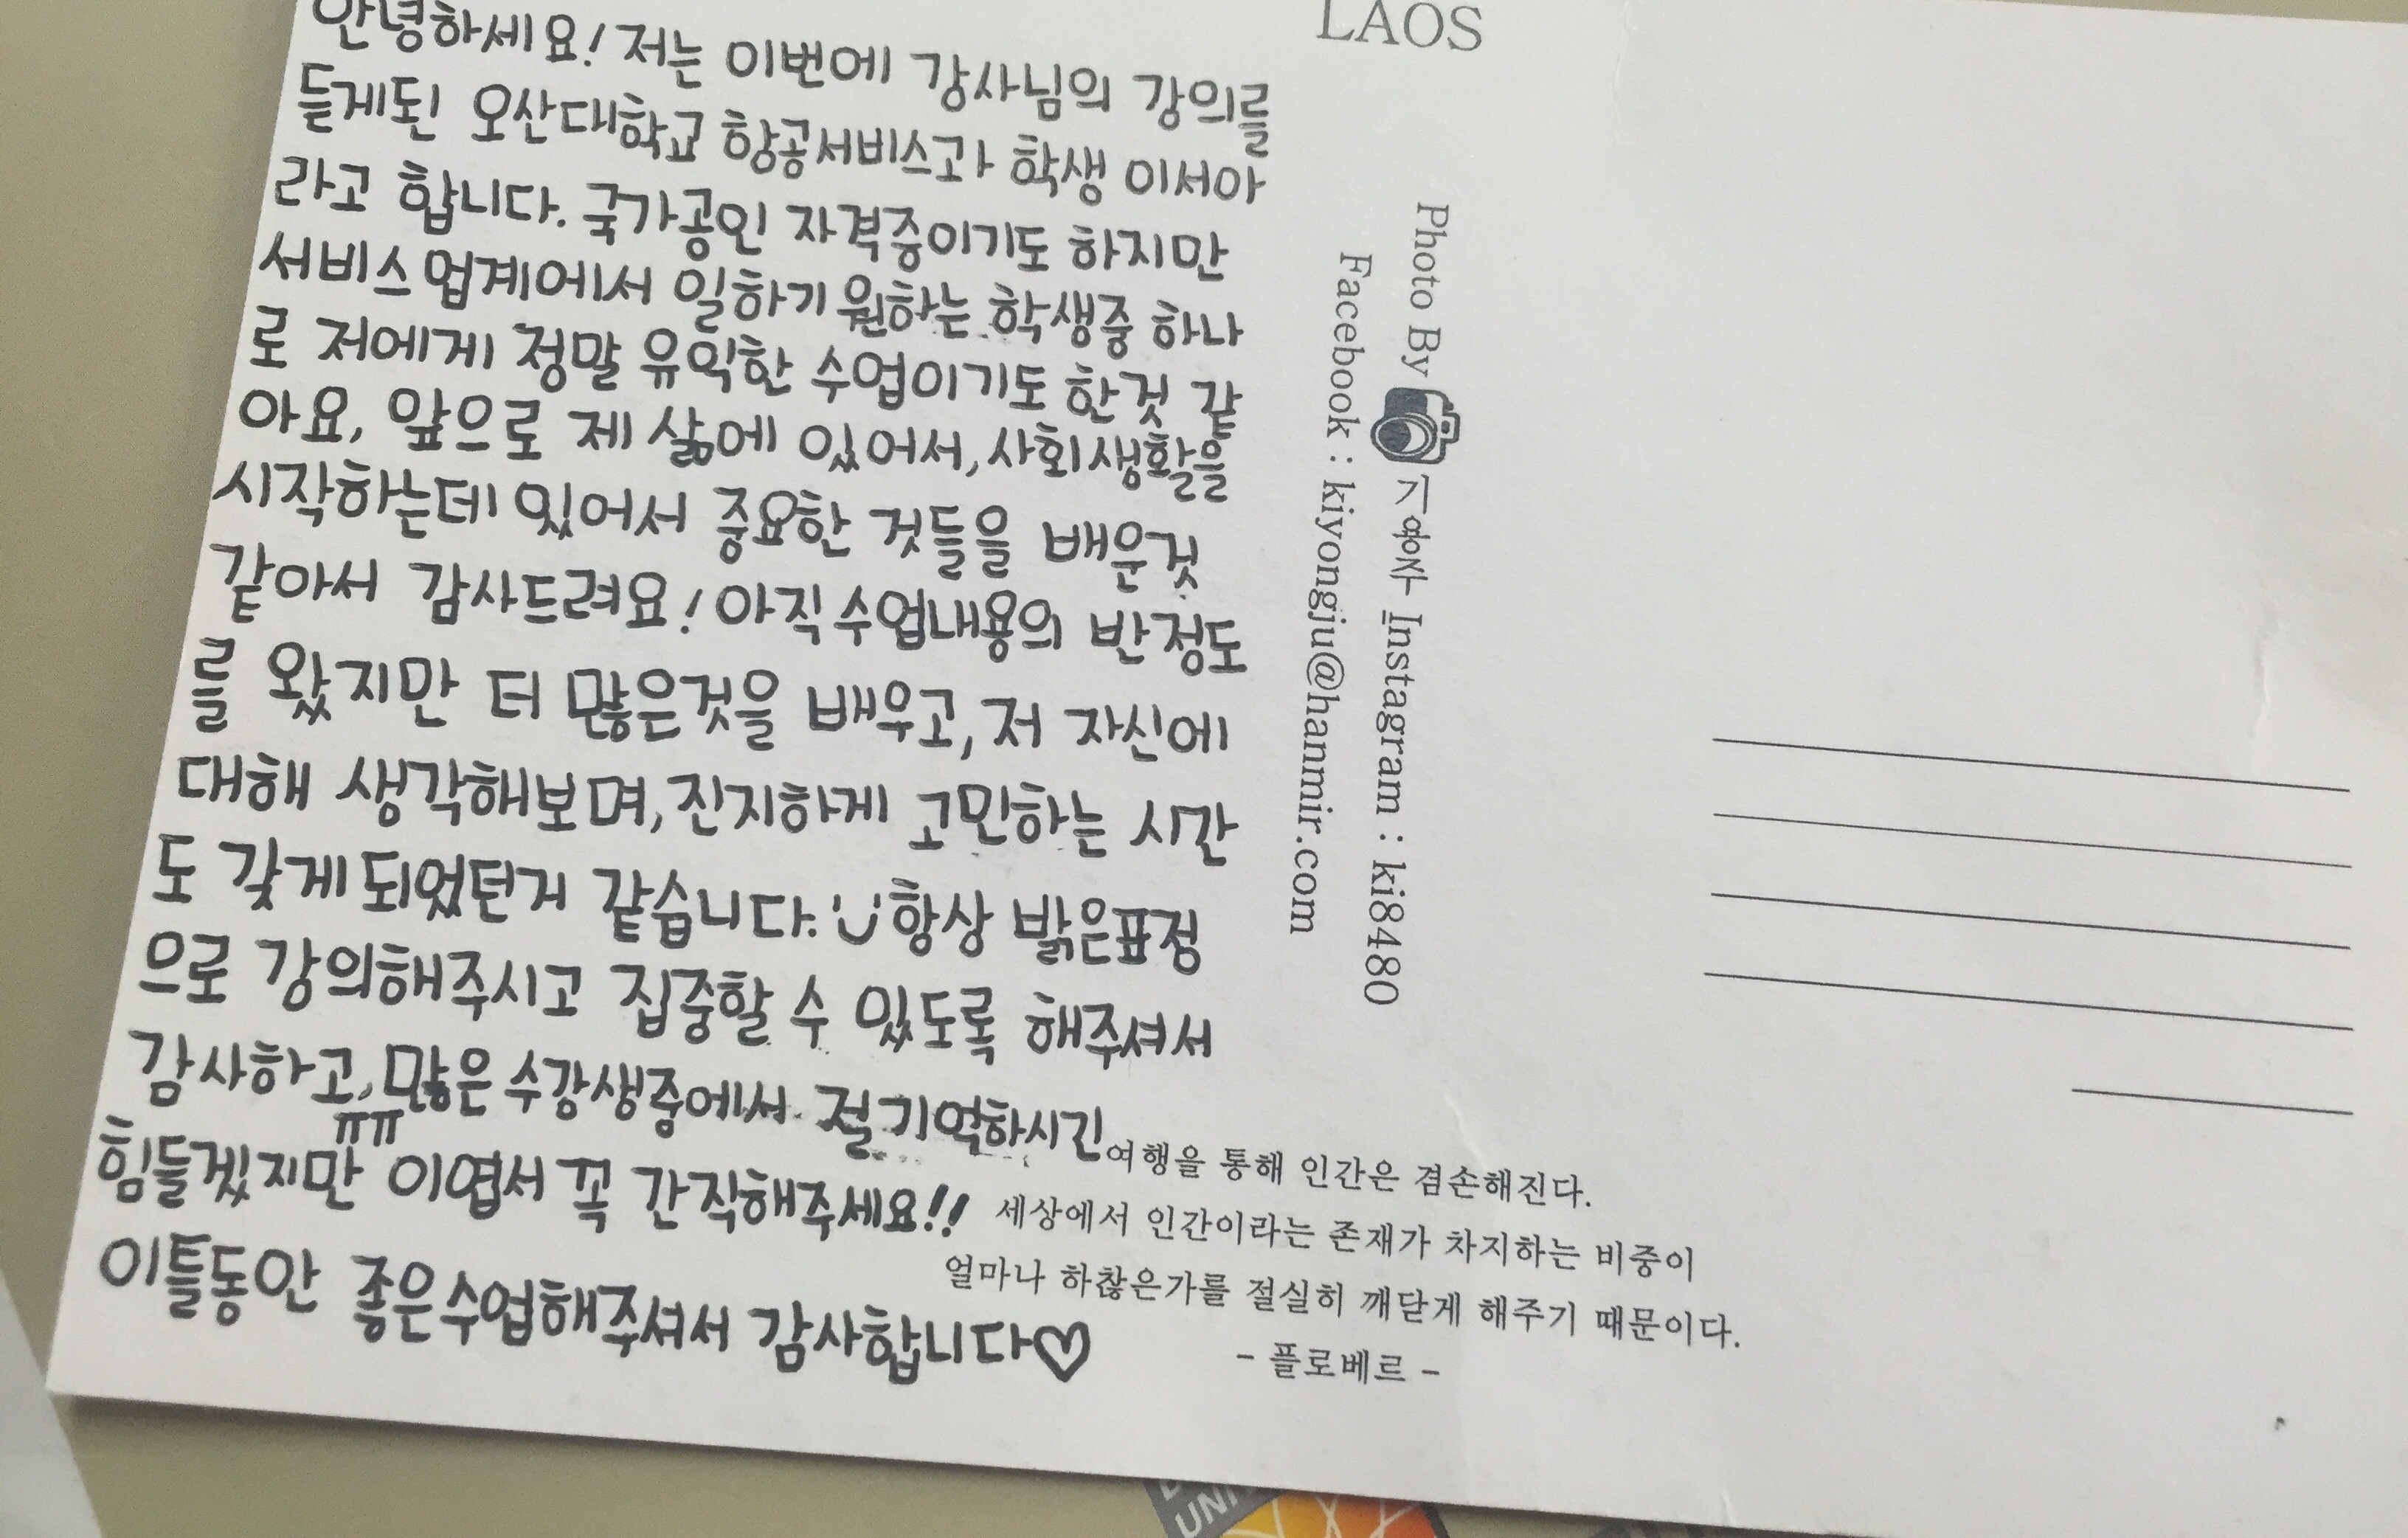 안녕하세요! 저는 이번에 강사님의 강의를
듣게된 오산대학교 항공서비스과 학생 이서아
라고 합니다. 국가공인 자격증이기도 하지만
서비스업계에서 일하기 원하는 학생중 하나
로 저에게 정말 유익한 수업이기도 한것 같
아요, 앞으로 제 삶에 있어서, 사회생활을
시작하는데 있어서 중요한 것들을 배운것
같아서 감사드려요! 아직 수업내용의 반정도
를 왔지만 더 많은것을 배우고, 저 자신에
대해 생각해보며, 진지하게 고민하는 시간
도 갖게 되었던거 같습니다. 항상 밝은표정
으로 강의해주시고 집중할 수 있도록 해주셔서
감사하고, 많은 수강생중에서 절 기억하시긴
힘들겠지만ㅠㅠ 이엽서 꼭 간직해주세요!!
이틀동안 좋은수업해주셔서 감사합니다♡
LAOS
Photo By
Instagram : ki8480
Facebook : kiyongju@hanmir.com
여행을 통해 인간은 겸손해진다.
세상에서 인간이라는 존재가 차지하는 비중이
얼마나 하찮은가를 절실히 깨닫게 해주기 때문이다.
- 플로베르 -